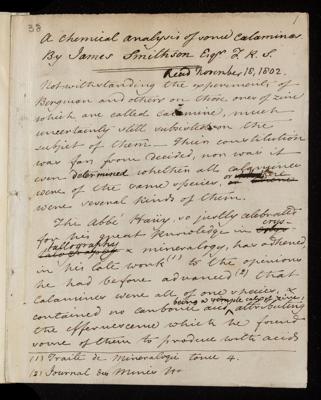 38
1
A chemical analysis of some calamines.
By James Smithson Esqr F. R. S.
Read November 18, 1802.
Notwithstanding the experiments of
Bergman and others on those ores of zinc
which are called calamine, much
uncertainty still subsisted on the
subject of them — Their constitution
was far from decided, nor was it
even determined whether all calamines
were of the same species, or
were several kinds of them.
The Abbé Haüy, so justly celebrated
for his great knowledge in crys-
tallography & mineralogy, has adhered,
in his late work (1) to the opinions
he had before advanced (2) that
calamines were all of one species, &
contained no carbonic acid, being a simple calx of zinc, attributing
the effervescence which he found
some of them to produce with acids
(1) Traité de Mineralogie tome 4.
(2) Journal des Mines No